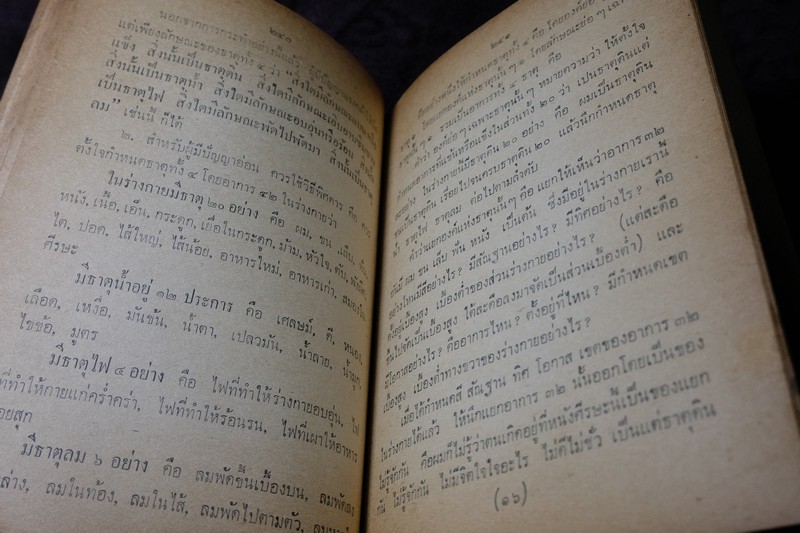 ๒๔๐
นอกจากการกระทำอย่างนี้แล้ว
แต่เพียงลักษณะของธาตุทั้ง ๔ ว่า "สิ่งใดมีลักษณะ
แข็ง สิ่งนั้นเป็นธาตุดิน สิ่งใดมีลักษณะเอิบอาบ
สิ่งนั้นเป็นธาตุน้ำ สิ่งใดมีลักษณะอบอุ่นหรือร้อน สิ่งนั้น
เป็นธาตุไฟ สิ่งใดมีลักษณะพัดไปพัดมา สิ่งนั้นเป็นธาตุ
ลม" เช่นนี้ ก็ได้
๒. สำหรับผู้มีปัญญาอ่อน ควรใช้วิธีพิศดาร คือ ควร
ตั้งใจกำหนดธาตุทั้ง ๔ โดยอาการ ๔๒ ในร่างกายว่า
ในร่างกายมีธาตุ ๒๐ อย่าง คือ ผม, ขน, เล็บ, ฟัน,
หนัง, เนื้อ, เอ็น, กระดูก, เยื่อในกระดูก, ม้าม, หัวใจ, ตับ, พังผืด
ไต, ปอด, ไส้ใหญ่, ไส้น้อย, อาหารใหม่, อาหารเก่า, สมองใน
ศีรษะ
มีธาตุน้ำอยู่ ๑๒ ประการ คือ เศลษม์, ดี, หนอง,
เลือด, เหงื่อ, มันข้น, น้ำตา, เปลวมัน, น้ำลาย, น้ำมูก
ไขข้อ, มูตร
มีธาตุไฟ ๔ อย่าง คือ ไฟที่ทำให้ร่างกายอบอุ่น, ไฟ
ที่ทำให้กายแก่คร่ำคร่า, ไฟที่ทำให้ร้อนรน, ไฟที่เผาให้อาหาร
ย่อยสุก
มีธาตุลม ๖ อย่าง คือ ลมพัดขึ้นเบื้องบน, ลมพัดลง
ล่าง, ลมในท้อง, ลมในไส้, ลมพัดไปตามตัว,
๒๔๑
ธาตุทั้ง ๔ คือ โดยองค์ย่อ
โดยแยกองค์แห่งธาตุนั้น ๆ ๑ โดยลักษณะย่อ ๆ
ธาตุนั้น ๆ ๑ รวมเป็นอาการทั้ง ๔ ธาตุ คือ
คำว่า องค์ย่อ ๆ เฉพาะธาตุนั้น ๆ หมายความว่า ให้ตั้งใจ
กำหนดอาการที่แข้นหรือแข็งในส่วนทั้ง ๒๐ ว่า เป็นธาตุดินแต่
ละอย่าง ในร่างกายนี้มีธาตุดิน ๒๐ อย่าง คือ ผมเป็นธาตุดิน
ขนเป็นธาตุดิน เรื่อยไปจนครบธาตุดิน ๒๐ แล้วนึกกำหนดธาตุ
น้ำ ธาตุไฟ ธาตุลม ต่อไปตามลำดับ
คำว่าแยกองค์แห่งธาตุนั้น ๆ คือ แยกให้เห็นว่าอาการ ๓๒
อันมี ผม ขน เล็บ ฟัน หนัง เป็นต้น ซึ่งมีอยู่ในร่างกายเรานี้
อย่างไหนมีสีอย่างไร? มีสัณฐานอย่างไร? มีทิศอย่างไร? คือ
ตั้งอยู่เบื้องสูง เบื้องต่ำของส่วนร่างกายอย่างไร? (แต่สะดือ
ขึ้นไปจัดเป็นเบื้องสูง ใต้สะดือลงมาจัดเป็นส่วนเบื้องต่ำ) และ
มีโอกาสอย่างไร? คืออาการไหน? ตั้งอยู่ที่ไหน? มีกำหนดเขต
เบื้องสูง เบื้องต่ำทางขวาของร่างกายอย่างไร?
เมื่อได้กำหนดสี สัณฐาน ทิศ โอกาส เขตของอาการ ๓๒
ในร่างกายได้แล้ว ให้นึกแยกอาการ ๓๒ นั้นออกโดยเป็นของ
ไม่รู้จักกัน คือผมก็ไม่รู้ว่าตนเกิดอยู่ที่หนังศีรษะนี้เป็นของแยก
กัน ไม่รู้จักกัน ไม่มีจิตใจใจอะไร ไม่ดีไม่ชั่ว เป็นแต่ธาตุดิน
(๑๖)